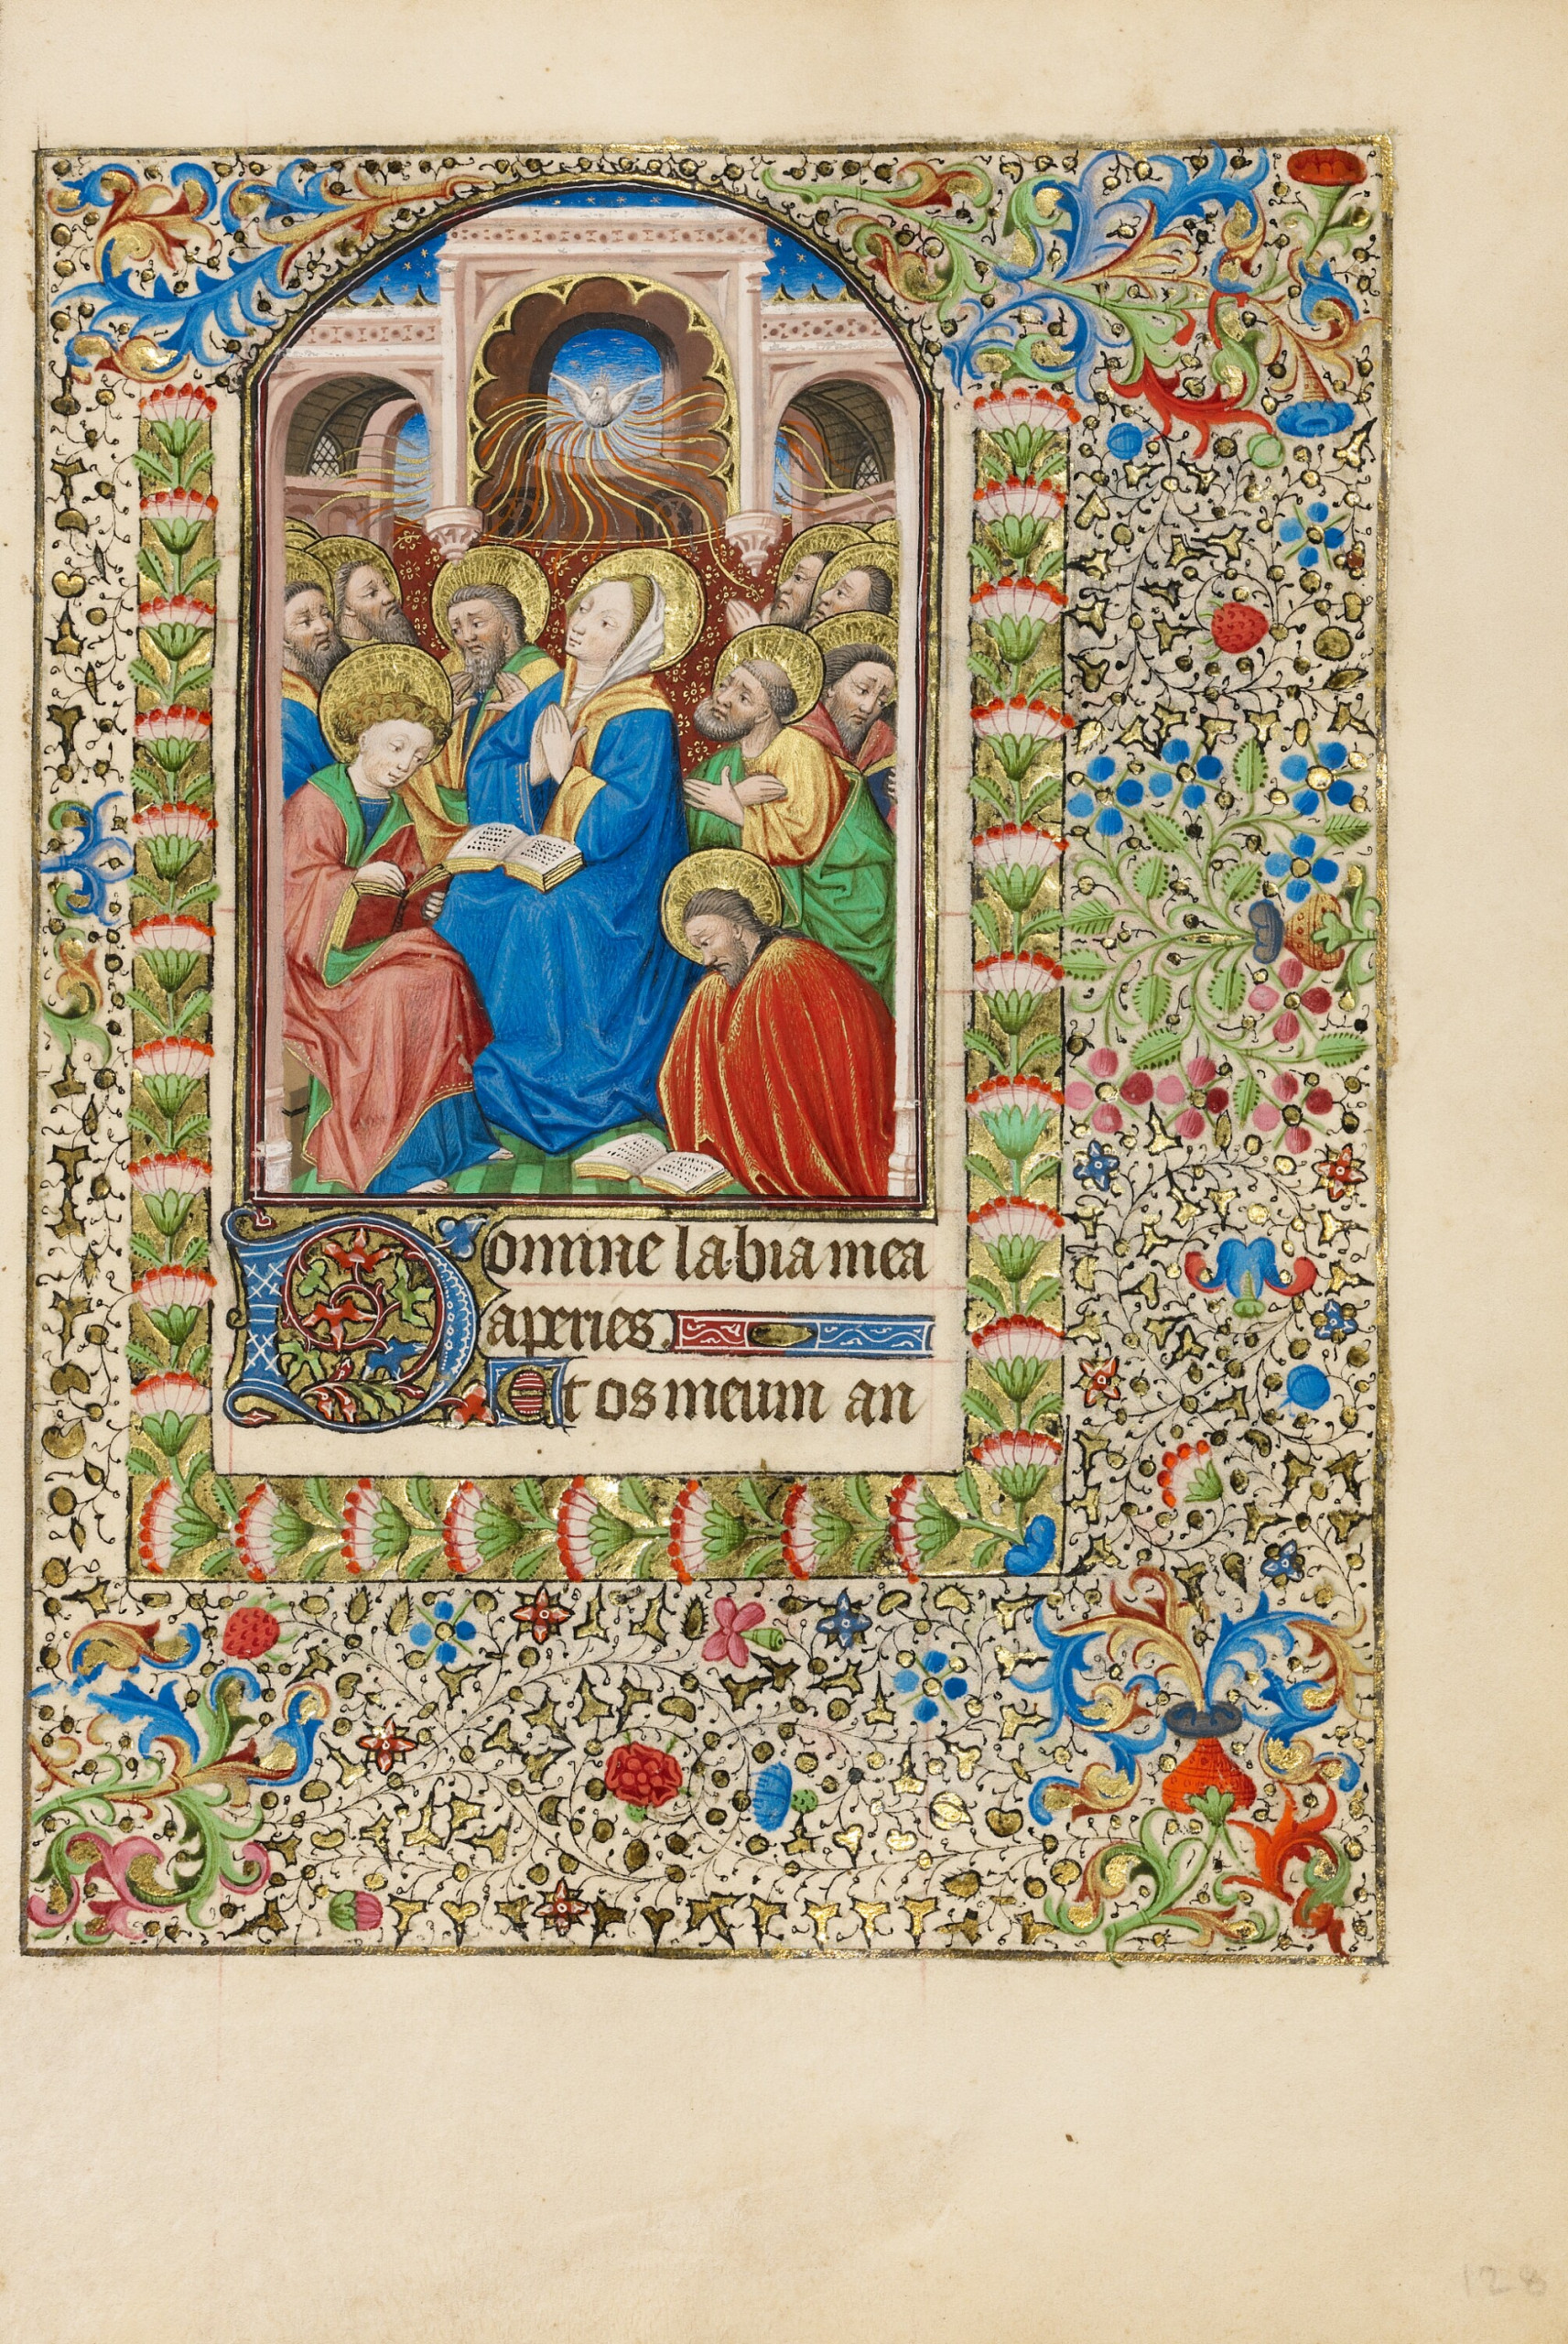 Domine labia mea
aperies.
Et os meum an
128